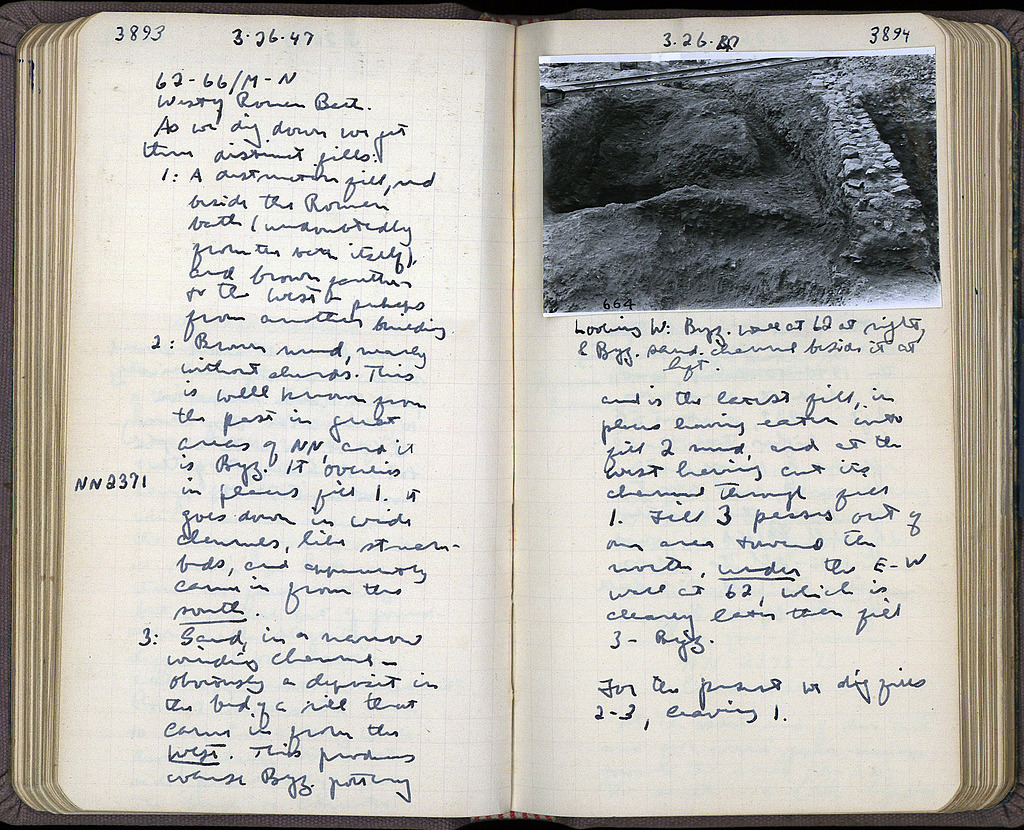 3893
3.26.47
62-66/M-N
West of Roman Bath.
As we dig down we get
three distinct fills:
1: A destruction fill, red
beside the Roman
bath (undoubtedly
from the bath itself),
and brown further
to the west - perhaps
from another building.
2: Brown mud, nearly
without sherds. This
is well known from
the past in great
areas of NN, and it
is Byz. It overlies
in places fill 1. It
goes down in wide
channels, like stream-
beds, and apparently
came in from the
south.
NN2371
3: Sand, in a narrow
winding channel -
obviously a deposit in
the bed of a rill that
came in from the
west. This produces
coarse Byz. pottery
3.26.47
3894
664
Looking W: Byz. wall at 62 at right,
& Byz. sand channel beside it at
left.
and is the latest fill, in
places having eaten into
fill 2 mud, and at the
west having cut its
channel through fill
1. Fill 3 passes out of
our area toward the
north, under the E-W
wall at 62, which is
clearly later than fill
3 - Byz.
For the present we dig fills
2-3, leaving 1.